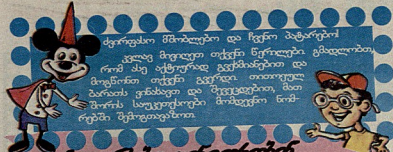 ძვირფასო მშობლებო და ჩვენო პატარებო!
კვლავ მივიღეთ თქვენი წერილები. გმადლობთ,
რომ ასე აქტიურად გვეხმიანებით და
მოგწონთ თქვენი გვერდი. თითოეულ
ბარათს ვინახავთ და შევეცდებით, მათ
შორის საუკეთესოები მომდევნო ნომ-
რებში შემოგთავაზოთ.